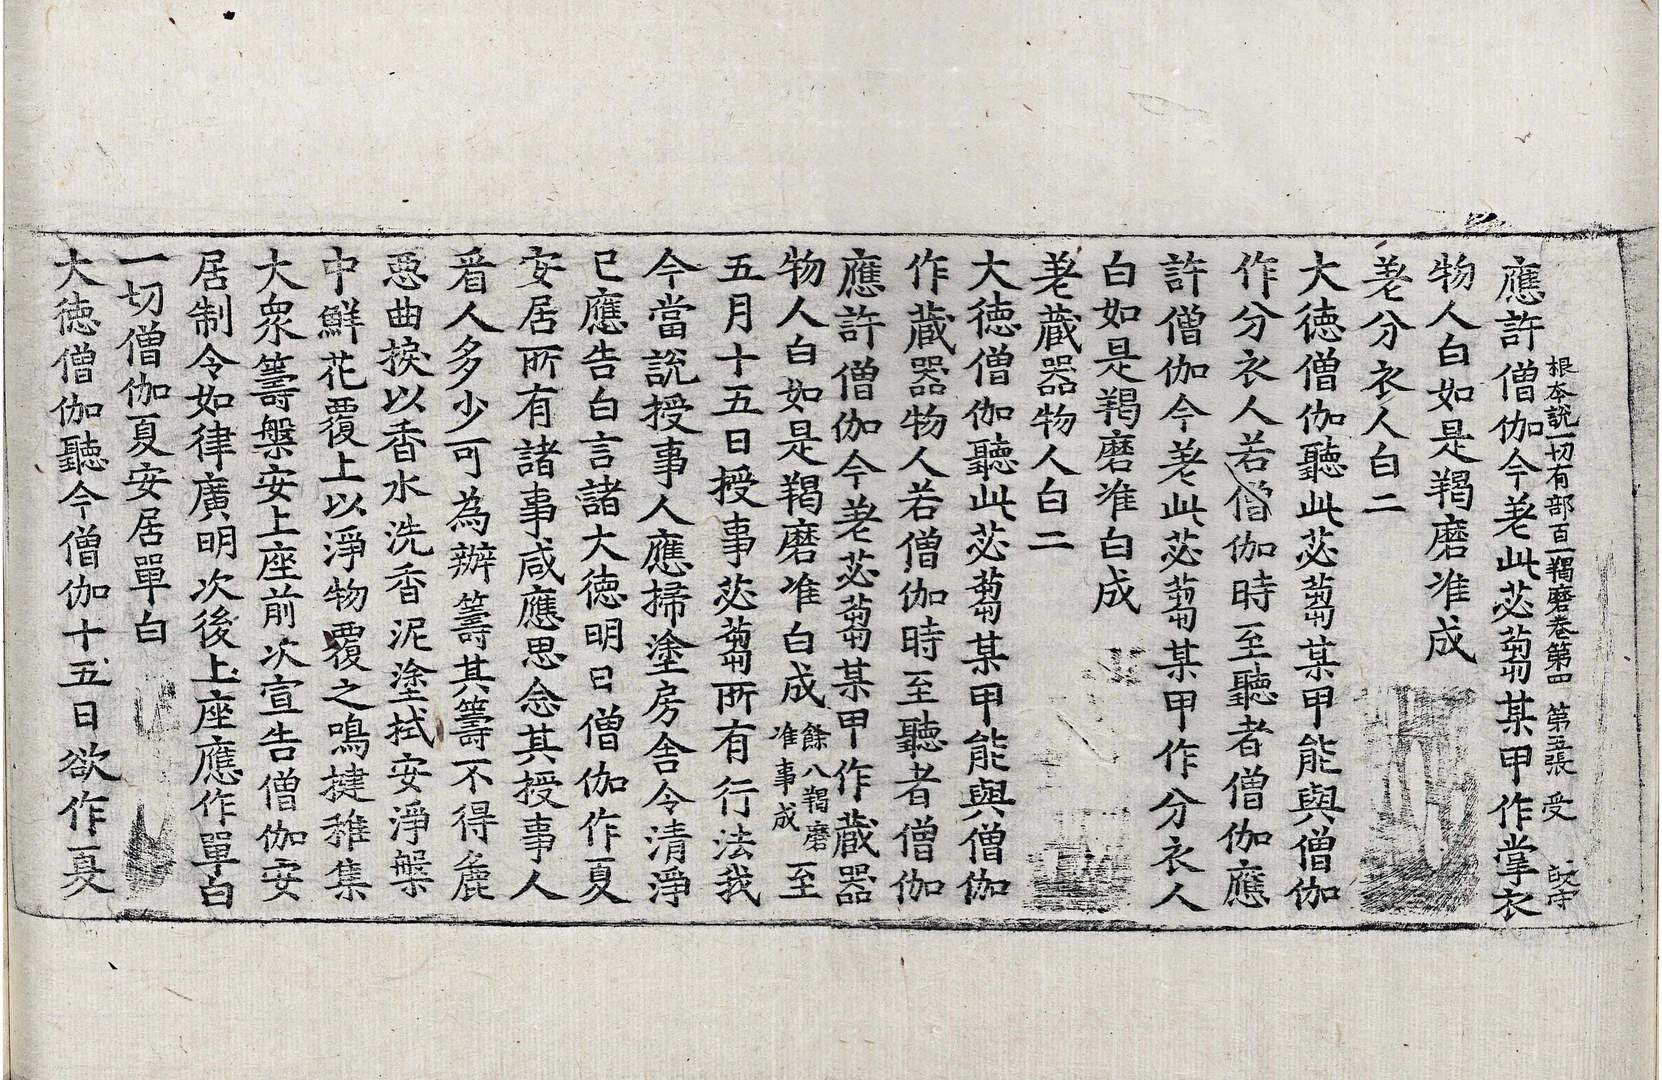 根本說一切有部百一羯磨卷第四 第五張 受
應許僧伽今差此苾蒭某甲作掌衣
物人白如是羯磨准成
差分衣人白二
大德僧伽聽此苾蒭某甲能與僧伽
作分衣人若僧伽時至聽者僧伽應
許僧伽今差此苾蒭某甲作分衣人
白如是羯磨准白成
差藏器物人白二
大德僧伽聽此苾蒭某甲能與僧伽
作藏器物人若僧伽時至聽者僧伽
應許僧伽今差苾蒭某甲作藏器
物人白如是羯磨准白成餘八羯磨准事成至
五月十五日授事苾蒭所有行法我
今當說授事人應掃塗房舍令清淨
已應告白言諸大德明日僧伽作夏
安居所有諸事咸應思念其授事人
看人多少可為辦籌其籌不得麁
惡曲捩以香水洗香泥塗拭安淨槃
中鮮花覆上以淨物覆之鳴揵稚集
大眾籌槃安上座前次宣告僧伽安
居制令如律廣明次後上座應作單白
一切僧伽夏安居單白
大德僧伽聽今僧伽十五日欲作夏